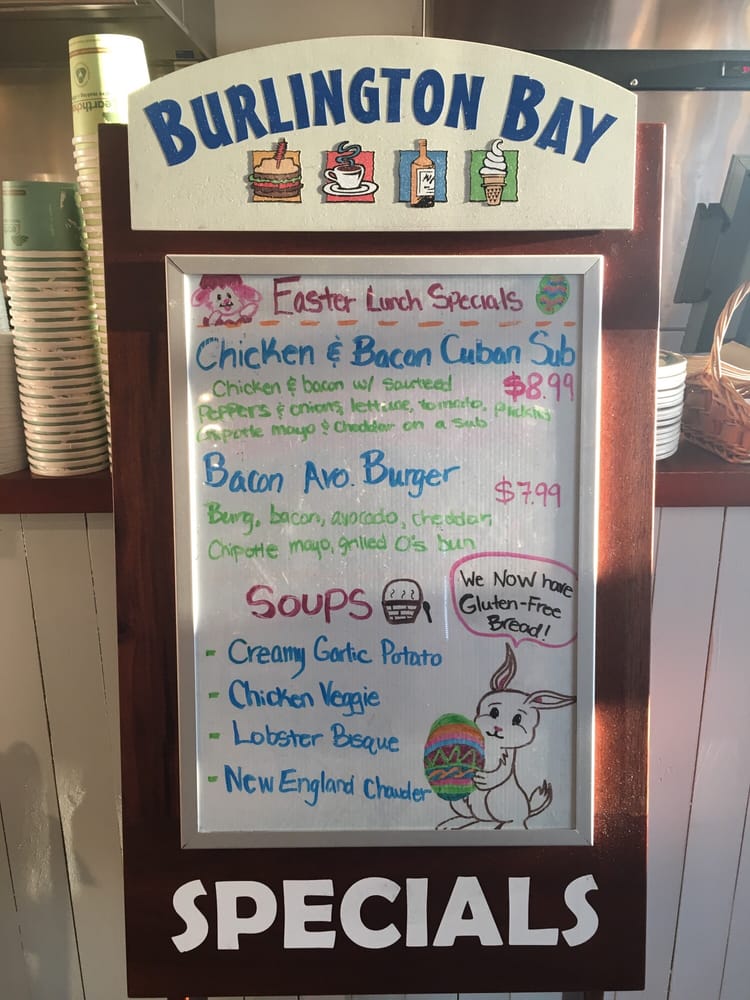 BURLINGTON BAY
Easter Lunch Specials
Chicken & Bacon Cuban Sub
Chicken & bacon w/ sauteed
$8.99
PEPPERS & onions, lettuce, tomato, pickles
Chipotle mayo & Cheddar on a sub
Bacon Avo. Burger
$7.99
Burg, bacon, avocado, cheddar
Chipotle mayo, grilled O's bun
SOUPS
We Now have
Gluten-Free
Bread!
- Creamy Garlic Potato
- Chicken Veggie
- Lobster Bisque
- New England Chowder
SPECIALS